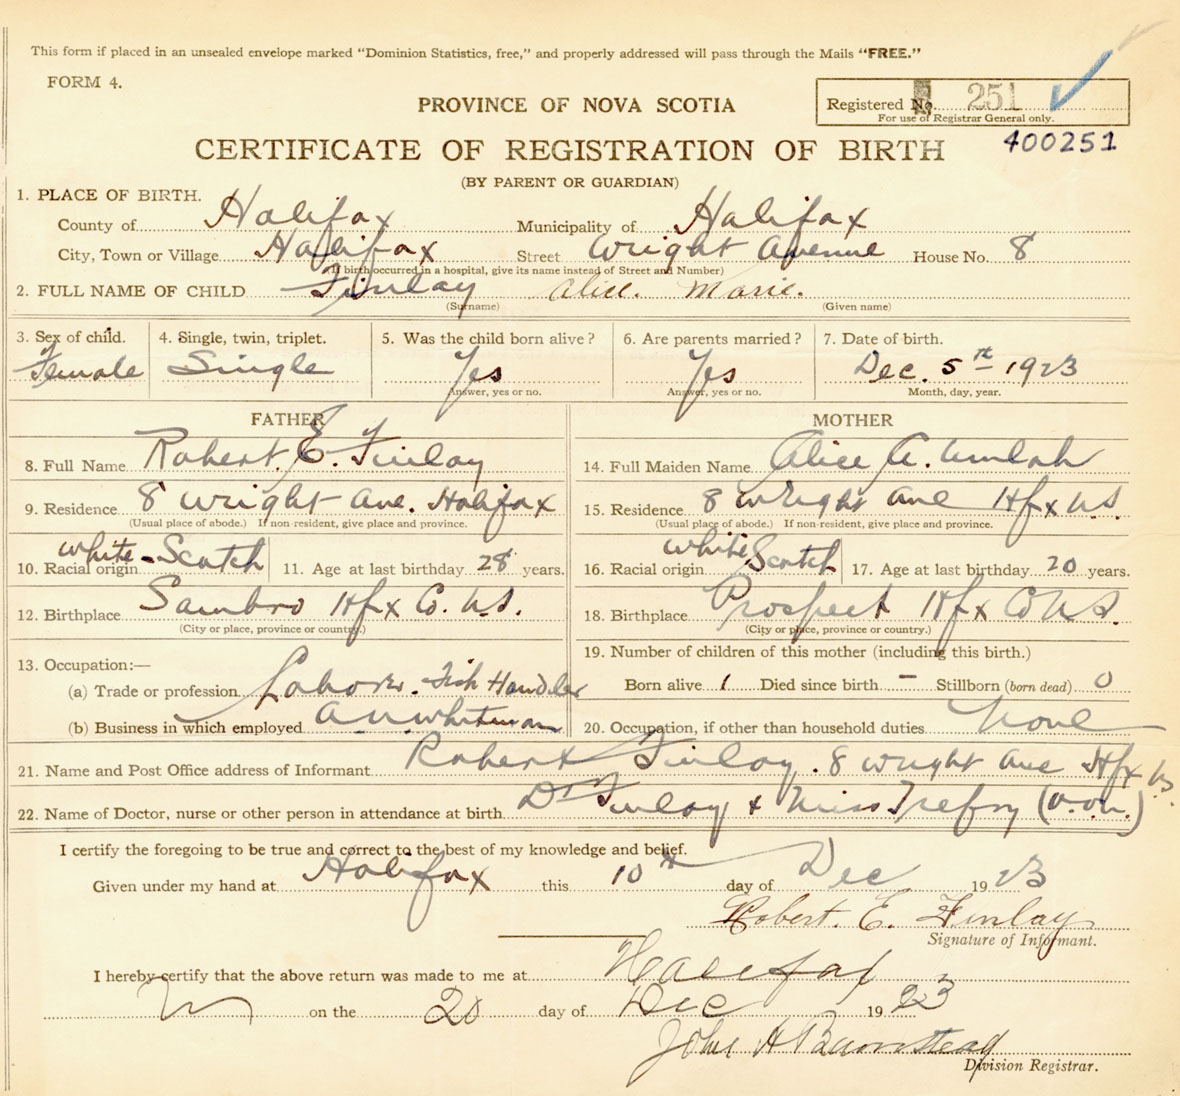 This form if placed in an unsealed envelope marked "Dominion Statistics, free," and properly addressed will pass through the Mails "FREE."
FORM 4.
Registered No. 251
For use of Registrar General only.
PROVINCE OF NOVA SCOTIA
400251
CERTIFICATE OF REGISTRATION OF BIRTH
(BY PARENT OR GUARDIAN)
1. PLACE OF BIRTH.
County of Halifax Municipality of Halifax
City, Town or Village Halifax Street Wright Avenue House No. 8
(If birth occurred in a hospital, give its name instead of Street and Number)
2. FULL NAME OF CHILD Finlay Alice Marie.
(Surname) (Given name)
3. Sex of child. 4. Single, twin, triplet. 5. Was the child born alive? 6. Are parents married? 7. Date of birth.
Female Single Yes Yes Dec. 5th 1923
Answer, yes or no. Answer, yes or no. Month, day, year.
FATHER MOTHER
8. Full Name Robert E. Finlay 14. Full Maiden Name Alice A. Umlah
9. Residence 8 Wright Ave. Halifax 15. Residence 8 Wright Ave Hfx N.S.
(Usual place of abode.) If non-resident, give place and province. (Usual place of abode.) If non-resident, give place and province.
10. Racial origin White - Scotch 11. Age at last birthday 28 years. 16. Racial origin White Scotch 17. Age at last birthday 20 years.
12. Birthplace Sambro Hfx Co. N.S. 18. Birthplace Prospect Hfx Co N.S.
(City or place, province or country.) (City or place, province or country.)
13. Occupation:— 19. Number of children of this mother (including this birth.)
(a) Trade or profession Laborer. Fish Handler Born alive 1 Died since birth - Stillborn (born dead) 0
(b) Business in which employed A.N. Whitman 20. Occupation, if other than household duties None
21. Name and Post Office address of Informant Robert Finlay. 8 Wright Ave Hfx N.S.
22. Name of Doctor, nurse or other person in attendance at birth Dr Finlay + Miss Trefry (V.O.N.)
I certify the foregoing to be true and correct to the best of my knowledge and belief.
Given under my hand at Halifax this 10th day of Dec 1923
Robert. E. Finlay
Signature of Informant.
I hereby certify that the above return was made to me at Halifax
on the 20 day of Dec 1923
John A Barnstead
Division Registrar.